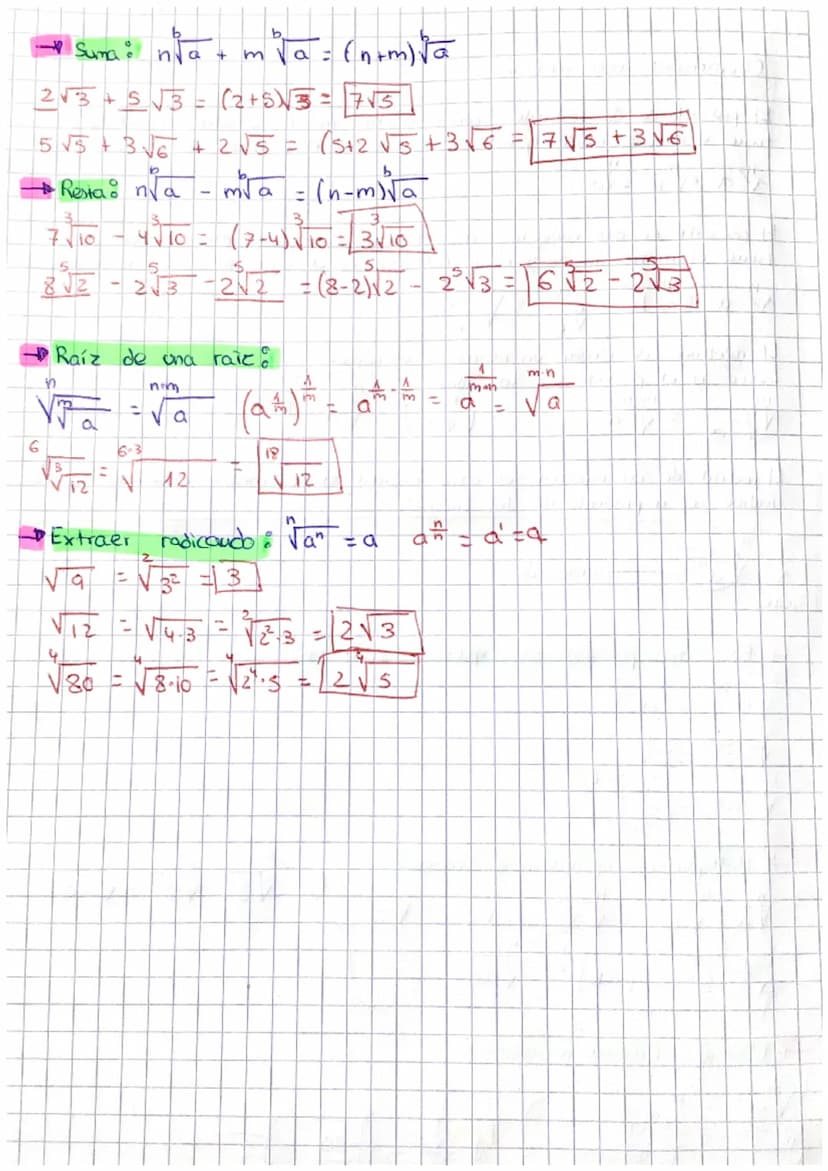 → Suma: n ᵇ√a + m ᵇ√a = (n+m) ᵇ√a
2√3 + 5√3 = (2+5)√3 = 7√5
5√5 + 3√6 + 2√5 = (5+2 √5 + 3√6 = 7√5 + 3√6
→ Resta: n ᵇ√a - m ᵇ√a = (n-m) ᵇ√a
7 ³√10 - 4 ³√10 = (7-4) ³√10 = 3 ³√10
8 ⁵√2 - 2 ⁵√3 - 2 ⁵√2 = (8-2) ⁵√2 - 2 ⁵√3 = 6 ⁵√2 - 2 ⁵√3
→ Raíz de una raíz:
ⁿ√ᵐ√a = ⁿ·ᵐ√a (a^(1/m))^(1/m) = a^(1/m · 1/m) = a^(1/m·n) = ᵐ·ⁿ√a
⁶√³√12 = ⁶·³√12 = ¹⁸√12
→ Extraer radicando: ⁿ√aⁿ = a a^(n/n) = a¹ = a
√9 = ²√3² = 3
√12 = √4·3 = ²√2²·3 = 2√3
⁴√80 = ⁴√8·10 = ⁴√2⁴·5 = 2 ⁴√5